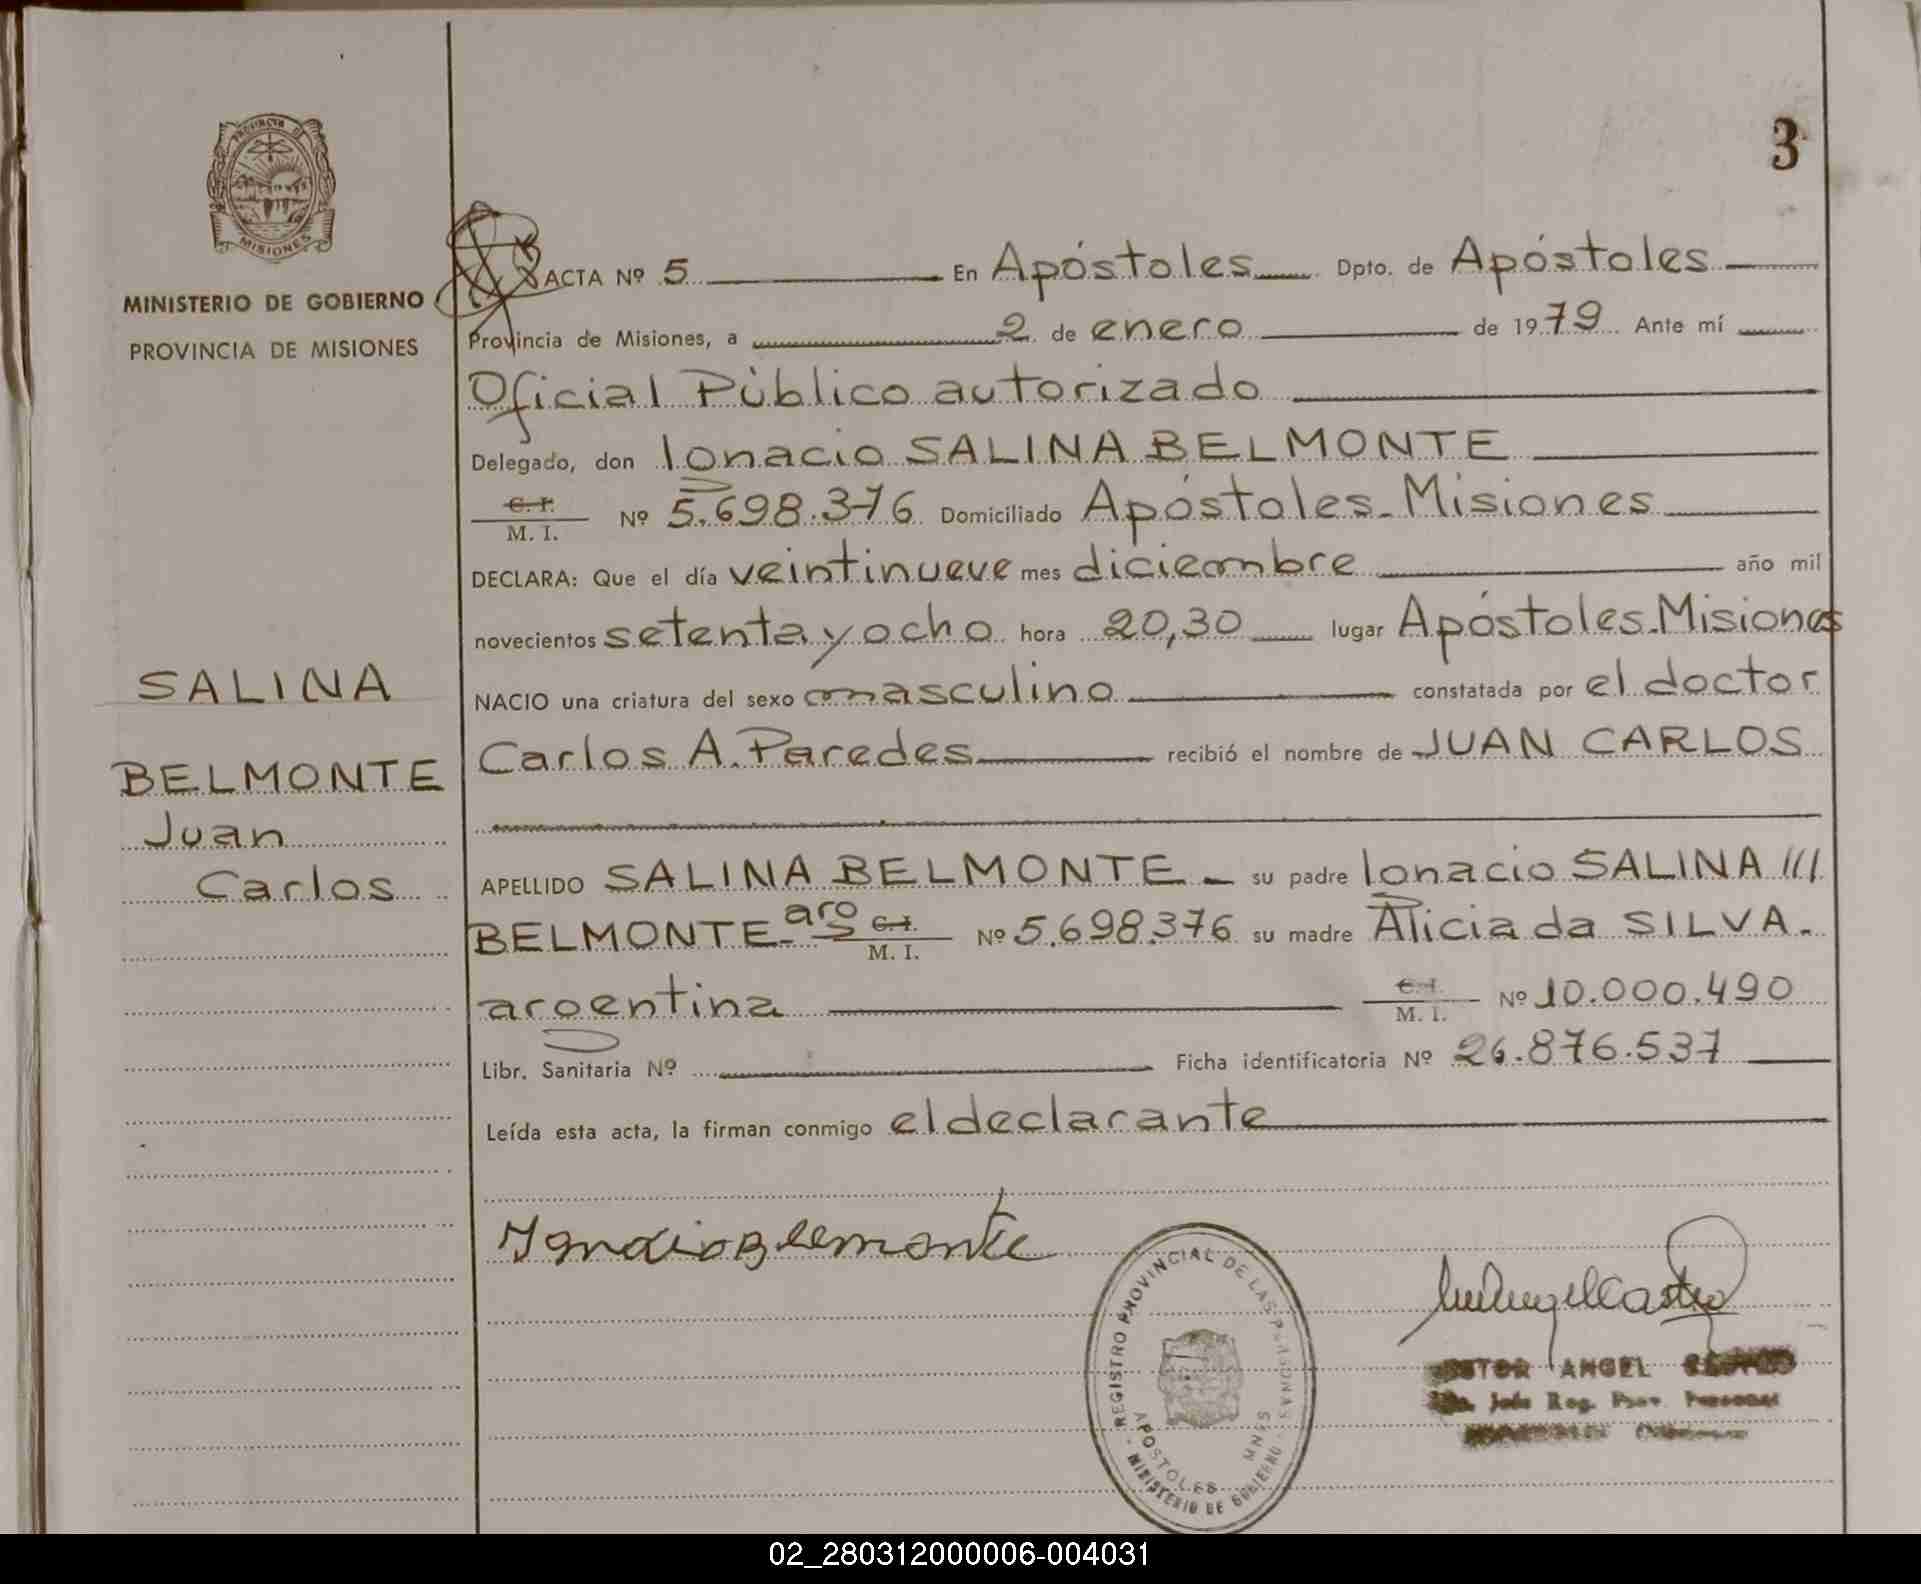 3
PROVINCIA DE
MISIONES
MINISTERIO DE GOBIERNO
PROVINCIA DE MISIONES
ACTA Nº 5 En Apóstoles Dpto. de Apóstoles
Provincia de Misiones, a 2 de enero de 1979 Ante mí
Oficial Público autorizado
Delegado, don Ignacio SALINA BELMONTE
C. I.
M. I. Nº 5.698.376 Domiciliado Apóstoles-Misiones
DECLARA: Que el día veintinueve mes diciembre año mil
novecientos setenta y ocho hora 20,30 lugar Apóstoles-Misiones
NACIO una criatura del sexo masculino constatada por el doctor
Carlos A. Paredes recibió el nombre de JUAN CARLOS
APELLIDO SALINA BELMONTE - su padre Ignacio SALINA ///
BELMONTE-arg C. I.
M. I. Nº 5.698.376 su madre Alicia da SILVA.
argentina C. I.
M. I. Nº 10.000.490
Libr. Sanitaria Nº Ficha identificatoria Nº 26.876.537
Leída esta acta, la firman conmigo el declarante
SALINA
BELMONTE
Juan
Carlos
REGISTRO PROVINCIAL DE LAS PERSONAS
APOSTOLES MNES
MINISTERIO DE GOBIERNO
ANGEL
Reg. Prov. Personas
02_280312000006-004031